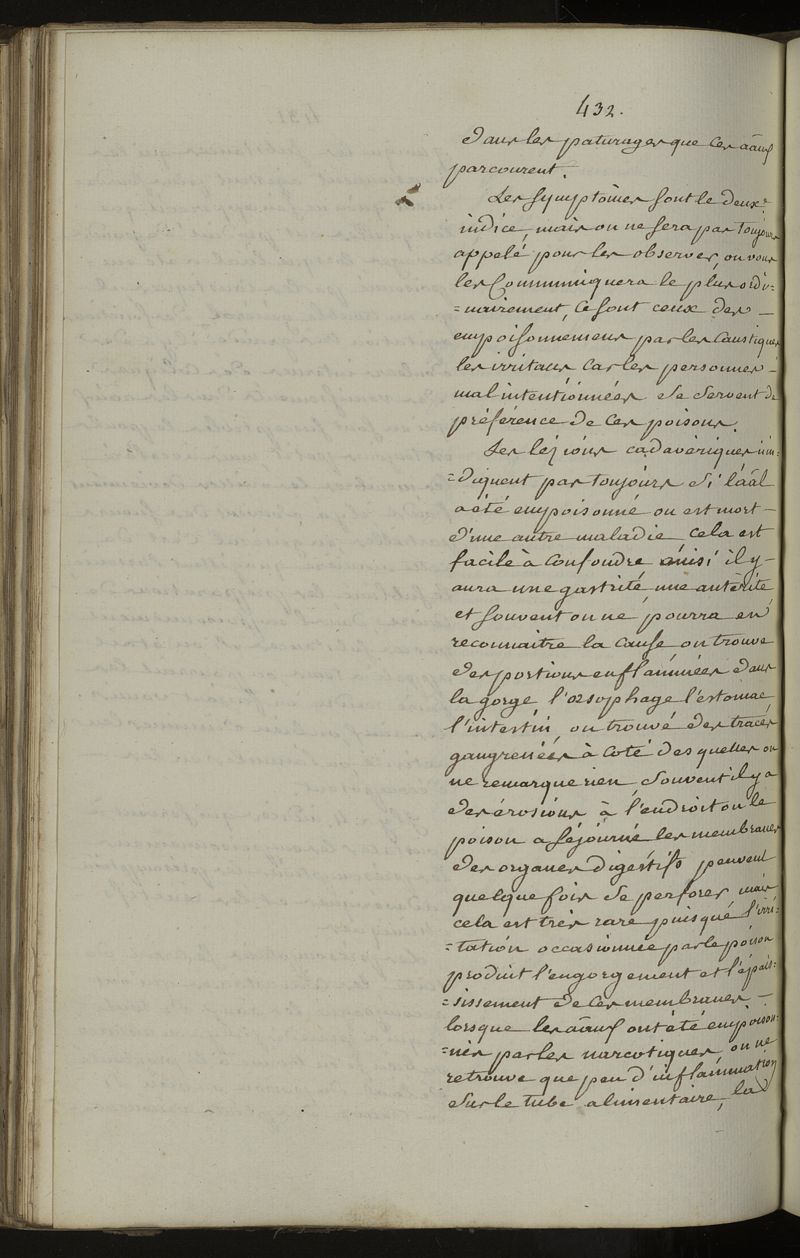 432.
dans les paturages que ces āāux
parcourent.
Les symptômes sont le deux.e
indice, mais on ne sera pas toujours
appelé pour les observer, on vous
les Communiquera le plus ordi-
=nairement, Ce sont ceux des —
empoisonnemens par les Caustiques
les irritans Car les personnes —
mal intentionnées se servent de
préférence de Ces poisons.
Les lézions cadavériques n'in-
=diquent pas toujours si l'āāl
a été empoisonné ou est mort —
d'une autre maladie, cela est
facile à Confondre ainsi il y —
aura une gastrité une antérite
et souvent on ne pourra en
reconnaitre la Cause, on trouve
des portions enflammées dans
la gorge l'œsophage l'estomac
l'intestin, on trouvé des tracés
gangrenéés à coté des quelles on
ne remarque rien, Souvent il y a
des érosions à l'endroit ou le
poison a séjourné les membranes
des organes digestifs peuvent
quelque fois se perforer mais
cela est très rare puisque l'irri-
=tation occasionnée par le poison
produit l'engorgement et l'épais-
=sissement de Ces membranes —
lorsque les āāux ont été empoison-
=nés par les narcotiques on ne
retrouve que peu d'inflammation
sur le tube alimentaire, la